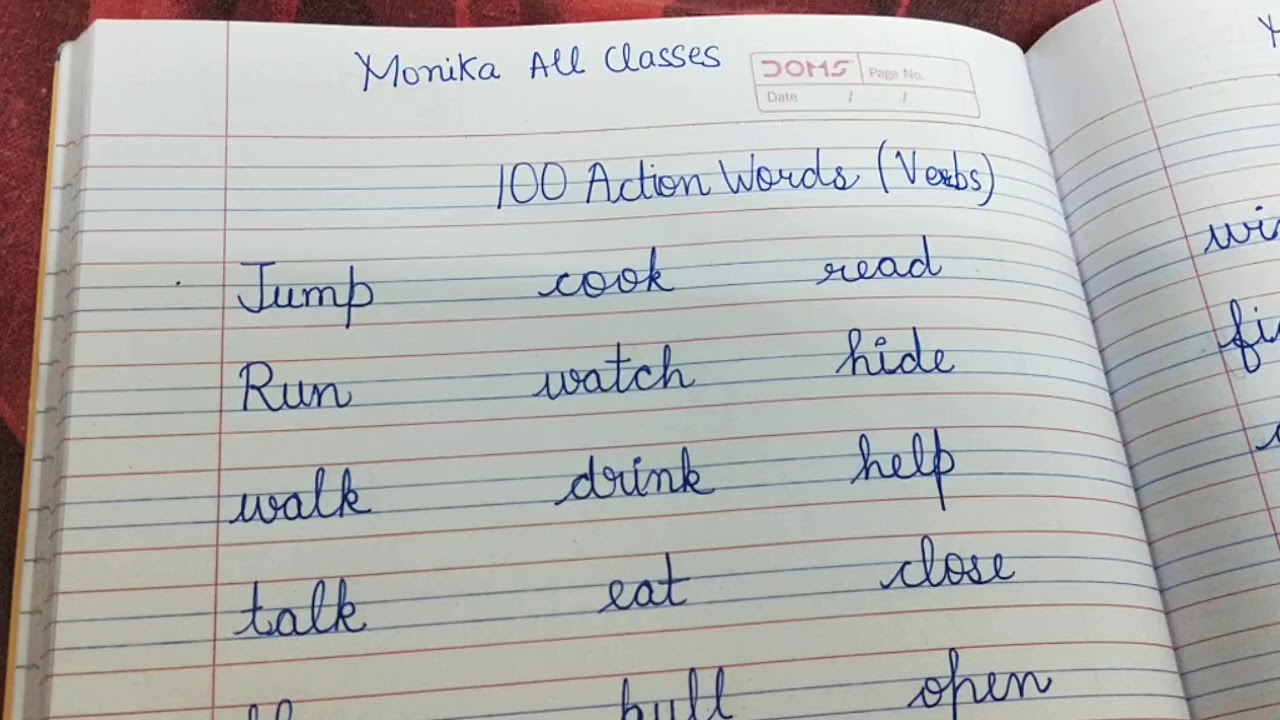 Monika All Classes
DOMS Page No.
Date / /
100 Action Words (Verbs)
Jump cook read
Run watch hide
walk drink help
talk eat close
pull open